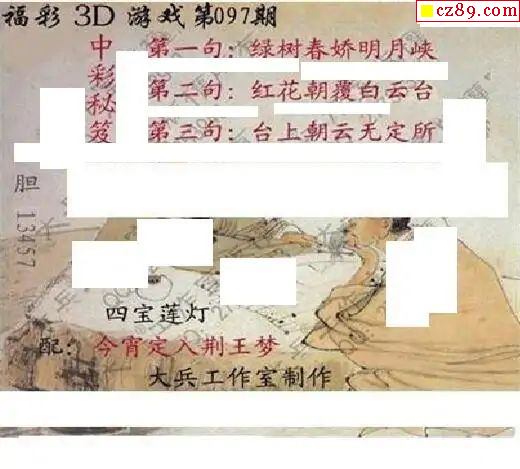 福彩 3D 游戏 第097期
cz89.com
中彩秘笈
第一句: 绿树春娇明月峡
第二句: 红花朝覆白云台
第三句: 台上朝云无定所
胆 13457
四宝莲灯
配: 今宵定入荆王梦
大兵工作室制作